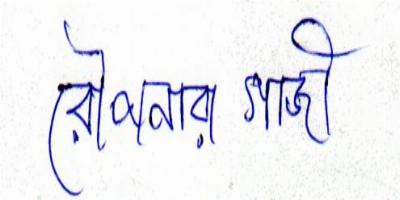 রৌশনারা গাজী